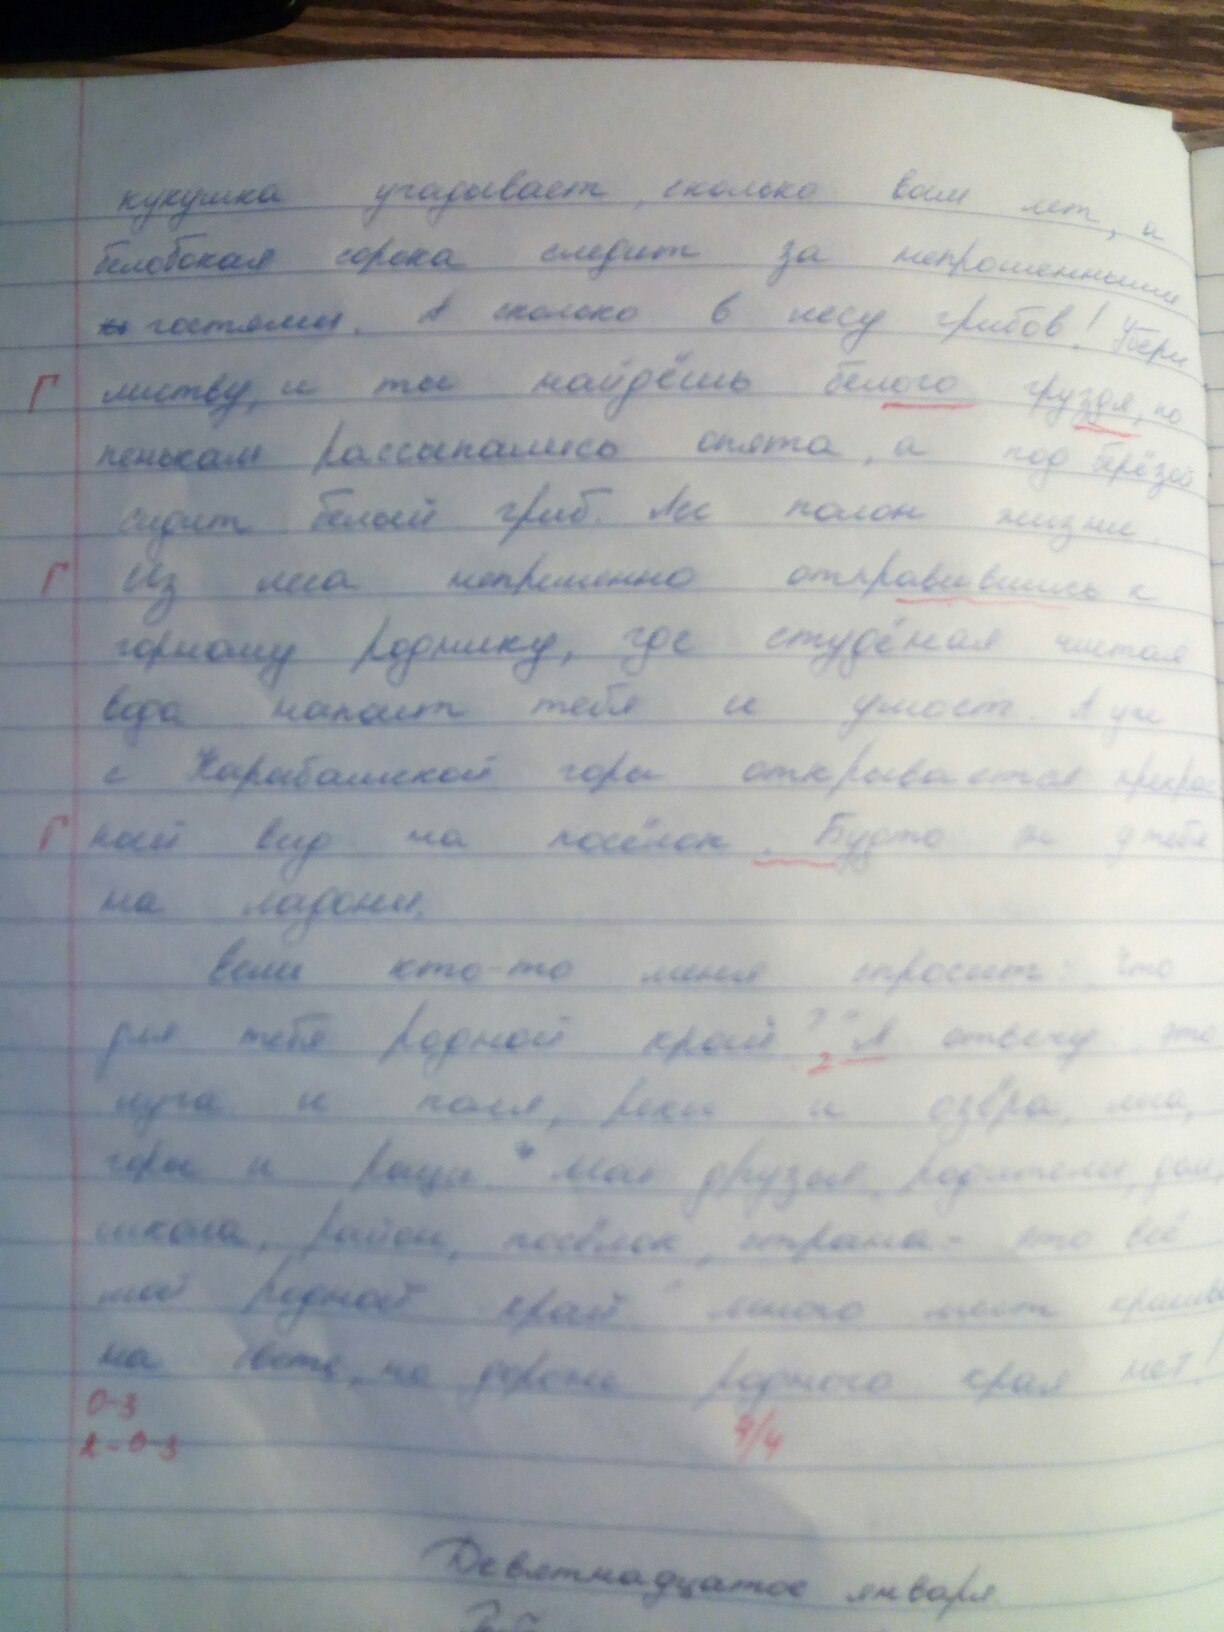 кукушка угадывает, сколько вам лет, и
белобокая сорока следит за непрошенными
гостями. А сколько в лесу грибов! Убери
Г листву, и ты найдёшь белого груздя, по
пенькам рассыпались опята, а под берёзой
сидит белый гриб. Лес полон жизни.
Г Из леса непременно отправившись к
горному роднику, где студёная чистая
вода напоит тебя и умоет. А уж
с Карабашской горы открывается прекрас
Г ный вид на посёлок. Будто он у тебя
на ладони.
Если кто-то меня спросит: Что
для тебя родной край?" Я отвечу: это
луга и поля, реки и озёра, леса,
горы и рощи. Мои друзья, родители, дом,
школа, район, посёлок, страна - это всё
мой родной край" много мест
на свете, но дороже родного края нет!
0-3
4/4
Девятнадцатое января